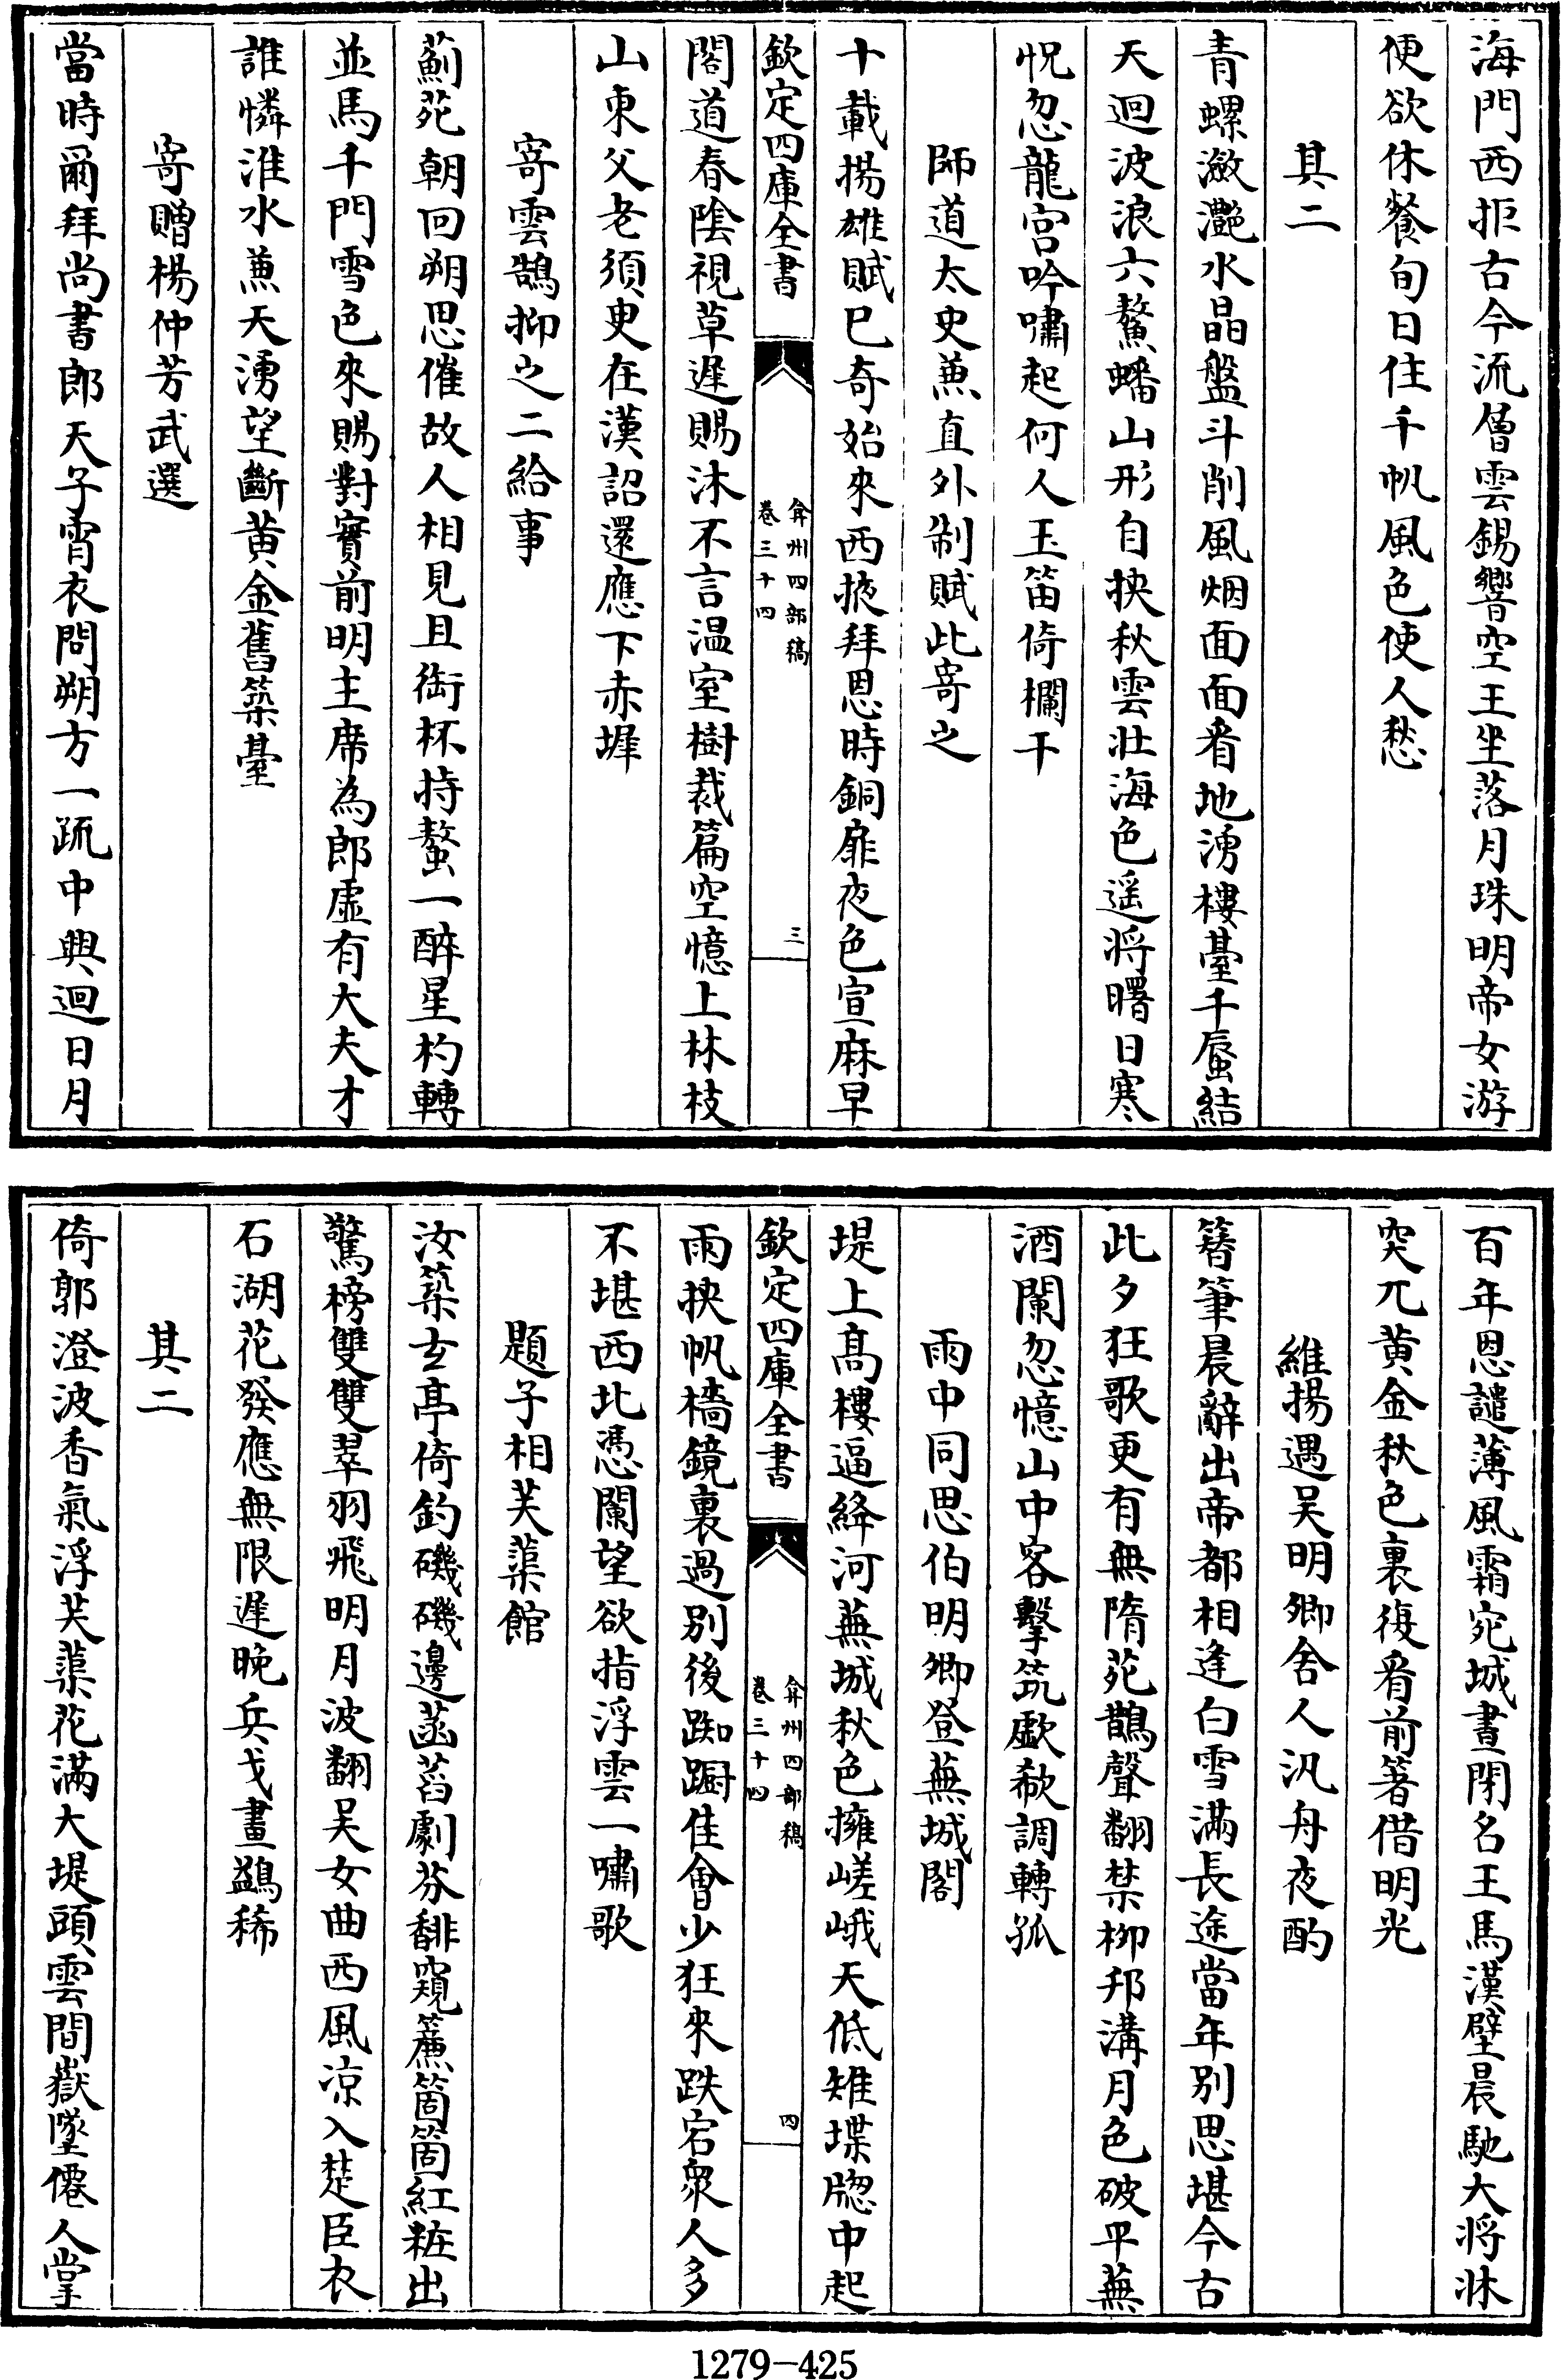 海門西拒古今流層雲錫響空王坐落月珠明帝女游
便欲休餐旬日住千帆風色使人愁
其二
青螺瀲灧水晶盤斗削風烟面面看地湧樓臺千蜃結
天迴波浪六鰲蟠山形自挾秋雲壯海色遥將曙日寒
怳忽龍宫吟嘯起何人玉笛倚欄干
師道太史蕪直外制賦此寄之
十載揚雄賦已奇始來西掖拜恩時銅扉夜色宣麻早
欽定四庫全書
弇州四部稿
卷三十四
三
閣道春陰視草遲賜沐不言温室樹裁篇空憶上林枝
山東父老須臾在漢詔還應下赤墀
寄雲鵠抑之二給事
薊苑朝回朔思催故人相見且銜杯持螯一醉星杓轉
並馬千門雪色來賜對實前明主席為郎虛有大夫才
誰憐淮水兼天湧望斷黄金舊築臺
寄贈楊仲芳武選
當時爾拜尚書郎天子宵衣問朔方一疏中興迴日月
百年恩譴薄風霜宛城晝閉名王馬漢壁晨馳大將牀
突兀黄金秋色裏復看前箸借明光
維揚遇吴明卿舍人汎舟夜酌
簪筆晨辭出帝都相逢白雪滿長途當年别思堪今古
此夕狂歌更有無隋苑鵲聲翻禁柳邗溝月色破平蕪
酒闌忽憶山中客擊筑歔欷調轉孤
雨中同思伯明卿登蕪城閣
堤上高樓逼絳河蕪城秋色擁嵯峨天低雉堞牕中起
欽定四庫全書
弇州四部稿
卷三十四
四
雨挾帆檣鏡裏過别後踟蹰佳會少狂來跌宕衆人多
不堪西北憑闌望欲指浮雲一嘯歌
題子相芙蕖館
汝築玄亭倚釣磯磯邊菡萏劇芬馡窺簾箇箇紅粧出
驚榜雙雙翠羽飛明月波翻吴女曲西風凉入楚臣衣
石湖花發應無限遲晚兵戈畫鷁稀
其二
倚郭澄波香氣浮芙蕖花滿大堤頭雲間嶽墜僊人掌
1279-425